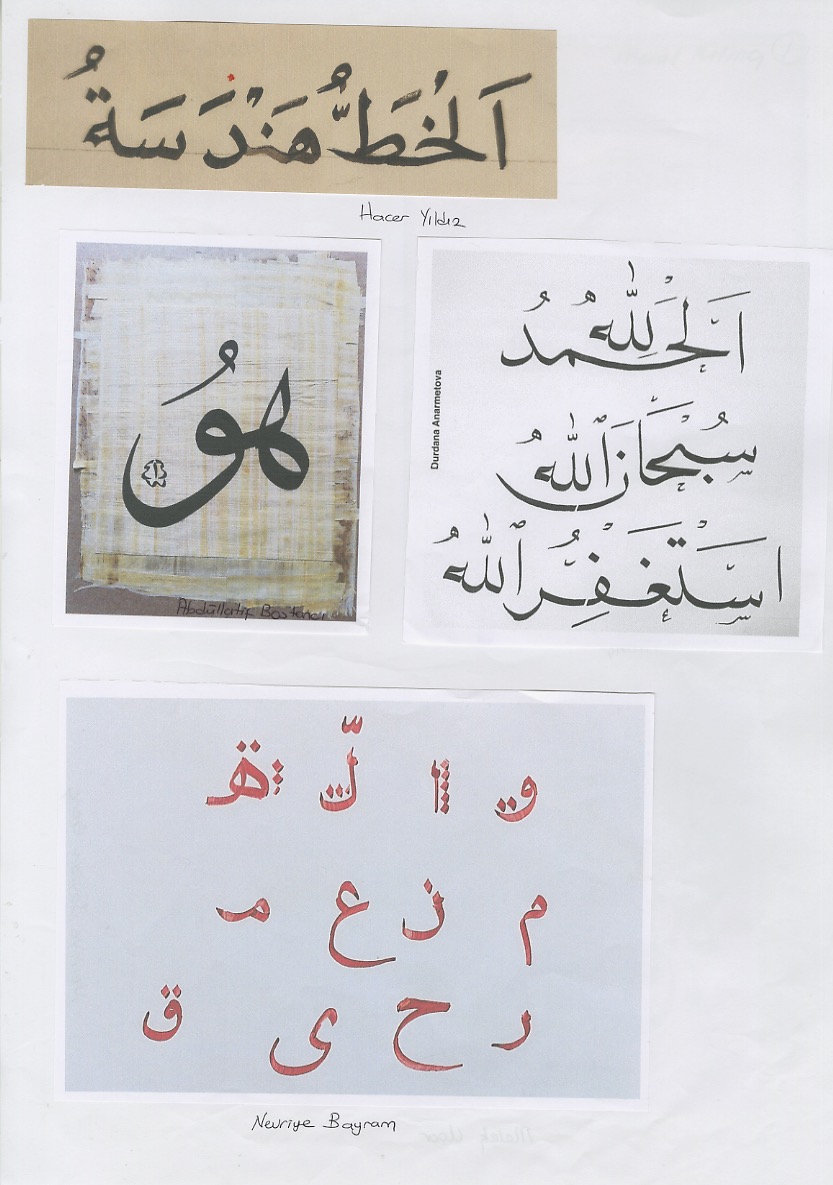 اَلْخَطُّ هَنْدَسَةُ
Hacer Yıldız
هُو
Abdüllatif
Durdana Anarmetova
اَلْحَمْدُ لِلّٰهِ
سُبْحَانَ اللّٰهُ
اَسْتَغْفِرُ اللّٰهُ
و ا ل ه
م ن ع م
ر ح ى ق
Nevriye Bayram